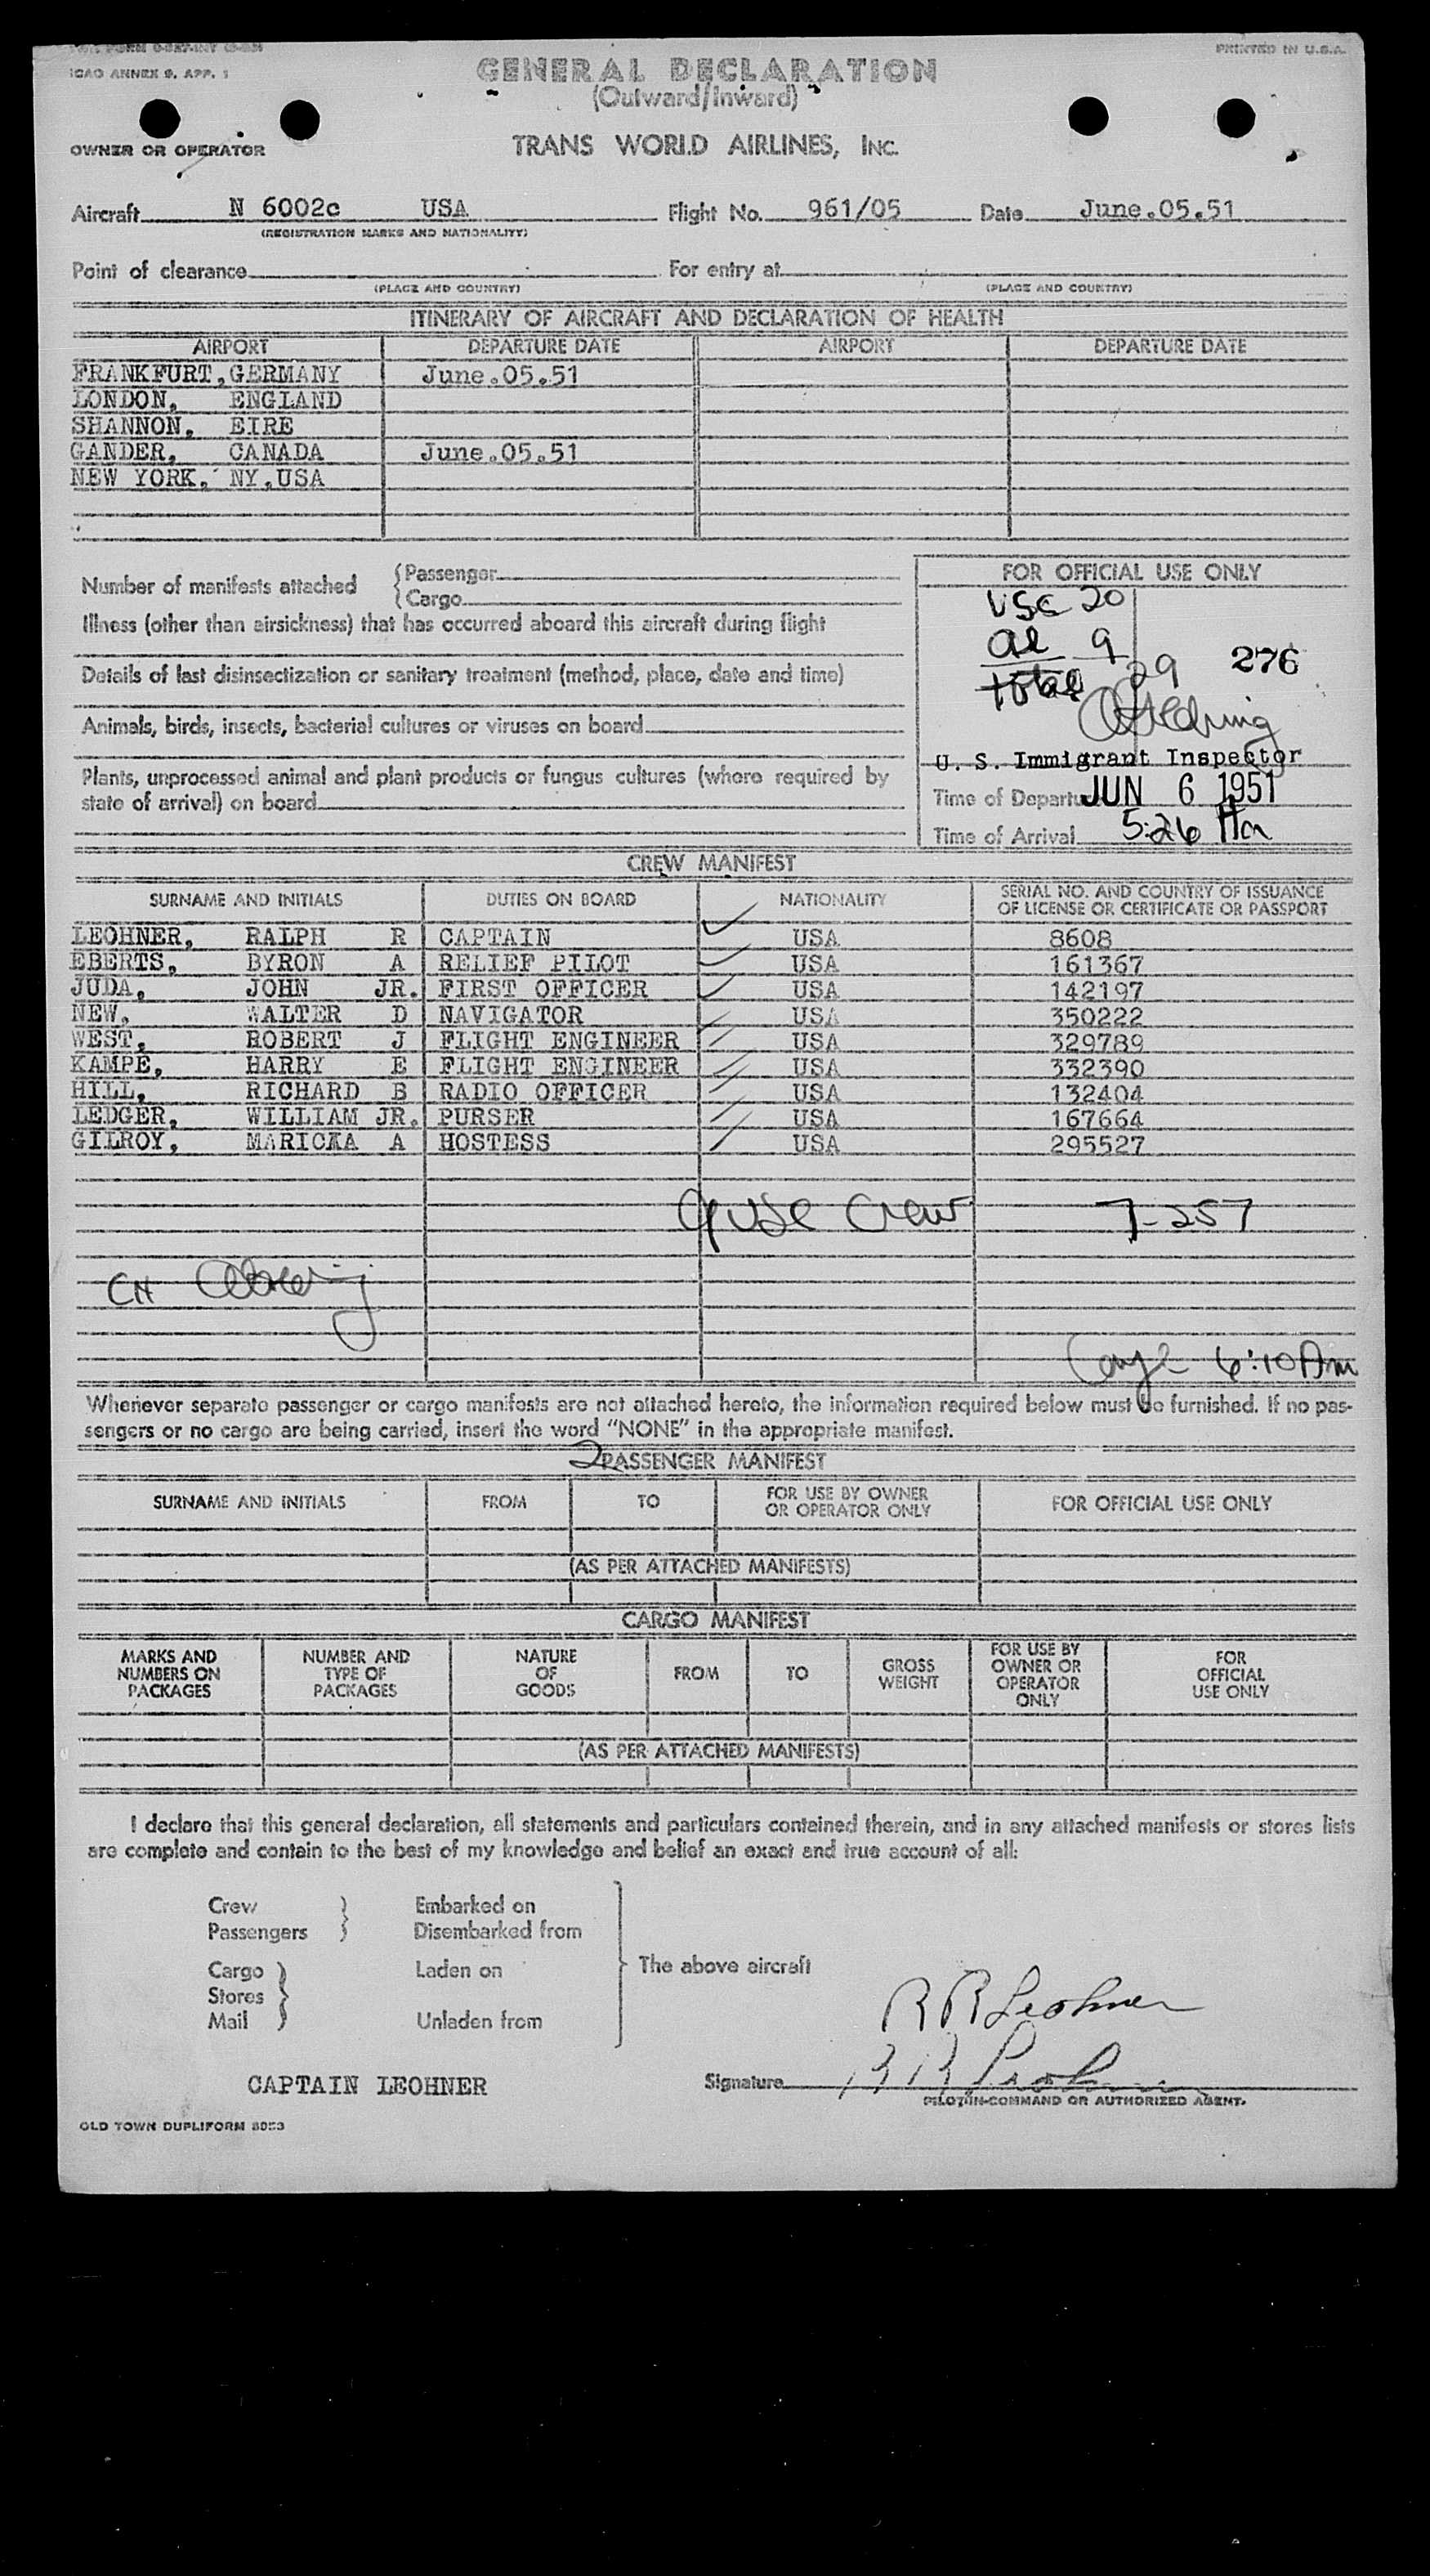 ICAO ANNEX 9, APP. 1
PRINTED IN U.S.A.
GENERAL DECLARATION
(Outward/Inward)
OWNER OR OPERATOR
TRANS WORLD AIRLINES, INC.
Aircraft N 6002c USA Flight No. 961/05 Date June.05.51
(REGISTRATION MARKS AND NATIONALITY)
Point of clearance For entry at
(PLACE AND COUNTRY) (PLACE AND COUNTRY)
ITINERARY OF AIRCRAFT AND DECLARATION OF HEALTH
AIRPORT DEPARTURE DATE AIRPORT DEPARTURE DATE
FRANKFURT, GERMANY June.05.51
LONDON, ENGLAND
SHANNON, EIRE
GANDER, CANADA June.05.51
NEW YORK, NY, USA
Number of manifests attached {Passenger
{Cargo
Illness (other than airsickness) that has occurred aboard this aircraft during flight
Details of last disinsectization or sanitary treatment (method, place, date and time)
Animals, birds, insects, bacterial cultures or viruses on board
Plants, unprocessed animal and plant products or fungus cultures (where required by
state of arrival) on board
FOR OFFICIAL USE ONLY
USC 20
al 9
total 29 276
U. S. Immigrant Inspector
Time of Departu JUN 6 1951
Time of Arrival 5:26 Am
CREW MANIFEST
SURNAME AND INITIALS DUTIES ON BOARD NATIONALITY SERIAL NO. AND COUNTRY OF ISSUANCE
OF LICENSE OR CERTIFICATE OR PASSPORT
LEOHNER, RALPH R CAPTAIN USA 8608
EBERTS, BYRON A RELIEF PILOT USA 161367
JUDA, JOHN JR. FIRST OFFICER USA 142197
NEW, WALTER D NAVIGATOR USA 350222
WEST, ROBERT J FLIGHT ENGINEER USA 329789
KAMPE, HARRY E FLIGHT ENGINEER USA 332390
HILL, RICHARD B RADIO OFFICER USA 132404
LEDGER, WILLIAM JR. PURSER USA 167664
GILROY, MARICKA A HOSTESS USA 295527
Crew 7-257
6:10 Am
Whenever separate passenger or cargo manifests are not attached hereto, the information required below must be furnished. If no pas-
sengers or no cargo are being carried, insert the word "NONE" in the appropriate manifest.
2 PASSENGER MANIFEST
SURNAME AND INITIALS FROM TO FOR USE BY OWNER OR OPERATOR ONLY FOR OFFICIAL USE ONLY
(AS PER ATTACHED MANIFESTS)
CARGO MANIFEST
MARKS AND NUMBERS ON PACKAGES NUMBER AND TYPE OF PACKAGES NATURE OF GOODS FROM TO GROSS WEIGHT FOR USE BY OWNER OR OPERATOR ONLY FOR OFFICIAL USE ONLY
(AS PER ATTACHED MANIFESTS)
I declare that this general declaration, all statements and particulars contained therein, and in any attached manifests or stores lists
are complete and contain to the best of my knowledge and belief an exact and true account of all:
Crew Embarked on
Passengers Disembarked from
Cargo Laden on The above aircraft
Stores
Mail Unladen from
R R Leohner
CAPTAIN LEOHNER Signature R R Leohner
PILOT-IN-COMMAND OR AUTHORIZED AGENT.
OLD TOWN DUPLIFORM 8053